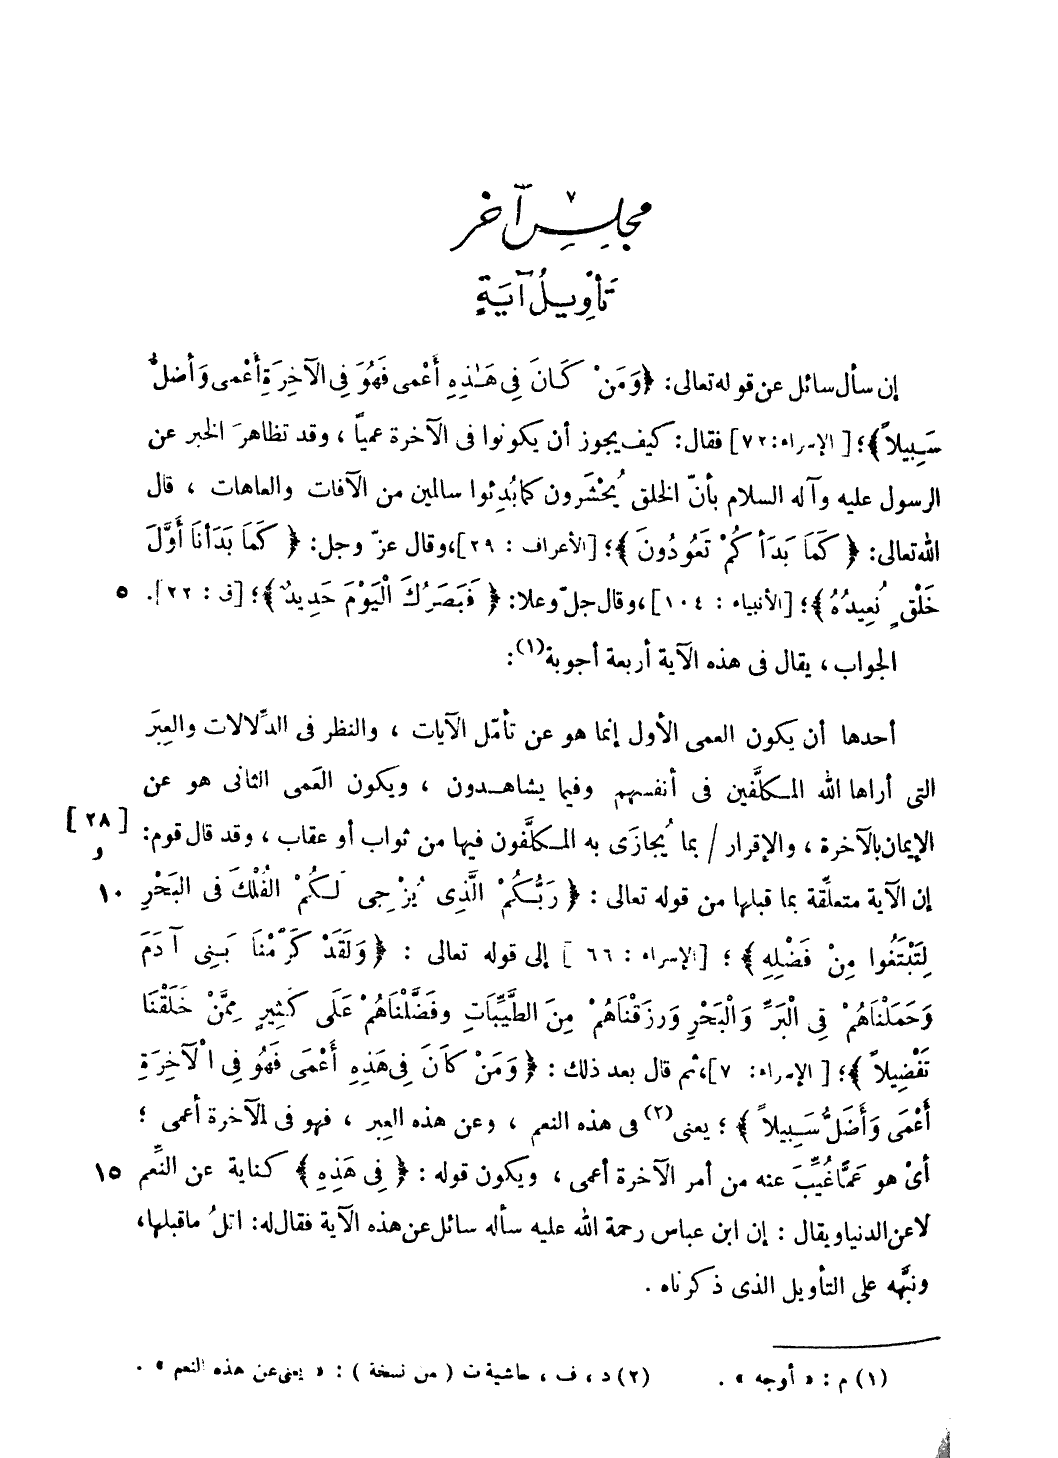 مجلس آخر
٧
تَأْوِيلُ آيَةٍ
إن سأل سائل عن قوله تعالى: ﴿وَمَنْ كَانَ فِى هَـٰذِهِ أَعْمى فَهُوَ فِى الآخِرَةِ أَعْمى وَأضلُّ
سَبِيلاً﴾؛ [الإسراء: ٧٢] فقال: كيف يجوز أن يكونوا فى الآخرة عمياً ، وقد تظاهرَ الخبر عن
الرسول عليه وآله السلام بأنّ الخلق يُحْشَرون كما بُدِئوا سالمين من الآفات والعاهات ، قال
الله تعالى: ﴿كَمَا بَدَأَكُمْ تَعُودُونَ﴾؛ [الأعراف : ٢٩]، وقال عزّ وجل: ﴿كَمَا بَدَأنَا أَوَّلَ
خَلْقٍ نُعِيدُهُ﴾؛ [الأنبياء : ١٠٤]، وقال جلّ وعلا: ﴿فَبَصَرُكَ الْيَوْمَ حَدِيدٌ﴾؛ [ق : ٢٢]. ٥
الجواب ، يقال فى هذه الآية أربعة أجوبة(١):
أحدها أن يكون العمى الأول إنما هو عن تأمّل الآيات ، والنظر فى الدِّلالات والعِبَر
التى أراها الله المكلَّفين فى أنفسهم وفيما يشاهدون ، ويكون العَمى الثانى هو عن
الإيمان بالآخرة ، والإقرار / بما يُجازَى به المكلَّفون فيها من ثواب أو عقاب ، وقد قال قوم: [٢٨ و]
إن الآية متعلّقة بما قبلها من قوله تعالى : ﴿رَبُّكُمْ الَّذِى يُزْجِى لَكُمْ الفُلْكَ فى البَحْرِ ١٠
لِتَبْتَغُوا مِنْ فَضْلِهِ﴾ ؛ [الإسراء : ٦٦] إلى قوله تعالى : ﴿وَلَقَدْ كَرَّمْنَا بَنِى آدَمَ
وَحَمَلْنَاهُمْ فِى الْبَرِّ وَالْبَحْرِ وَرزَقْنَاهُمْ مِنَ الطَّيِّبَاتِ وفَضَّلْنَاهُمْ عَلَى كَثِيرٍ مِمَّنْ خَلَقْنَا
تَفْضِيلاً﴾؛ [الإسراء: ٧٠]، ثم قال بعد ذلك : ﴿وَمَنْ كاَنَ فِى هَذِهِ أَعْمَى فَهُوَ فِى الْآخِرَةِ
أَعْمَى وَأَضَلُّ سَبِيلاً﴾ ؛ يعنى(٢) فى هذه النعم ، وعن هذه العِبر ، فهو فى الآخرة أعمى ؛
أىْ هو عَمَّا غُيِّبَ عنه من أمر الآخرة أعمى ، ويكون قوله : ﴿فِى هَذِهِ﴾ كناية عن النِّعم ١٥
لا عن الدنيا ويقال : إن ابن عباس رحمة الله عليه سأله سائل عن هذه الآية فقال له: اتلُ ما قبلها،
ونبَّهه على التأويل الذى ذكرناه .
(١) م : « أوجه » . (٢) د ، ف ، حاشية ت ( من نسخة ) : « يعنى عن هذه النعم » .